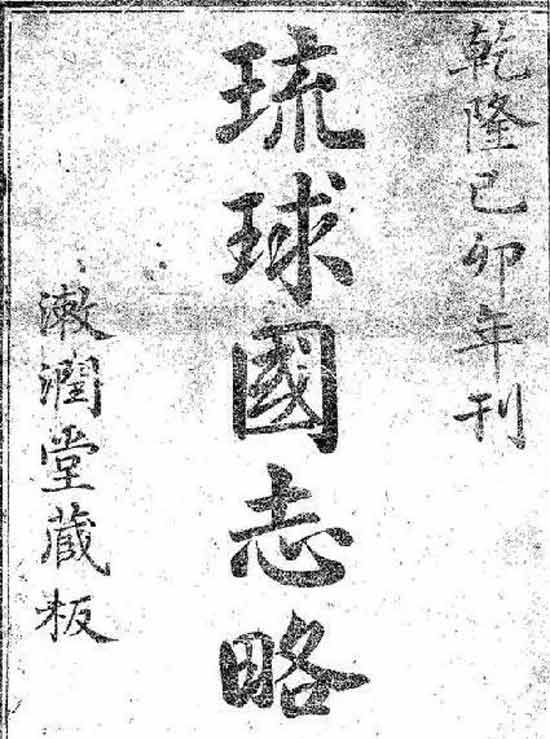 乾隆己卯年刊
琉球國志略
潄潤堂蔵板